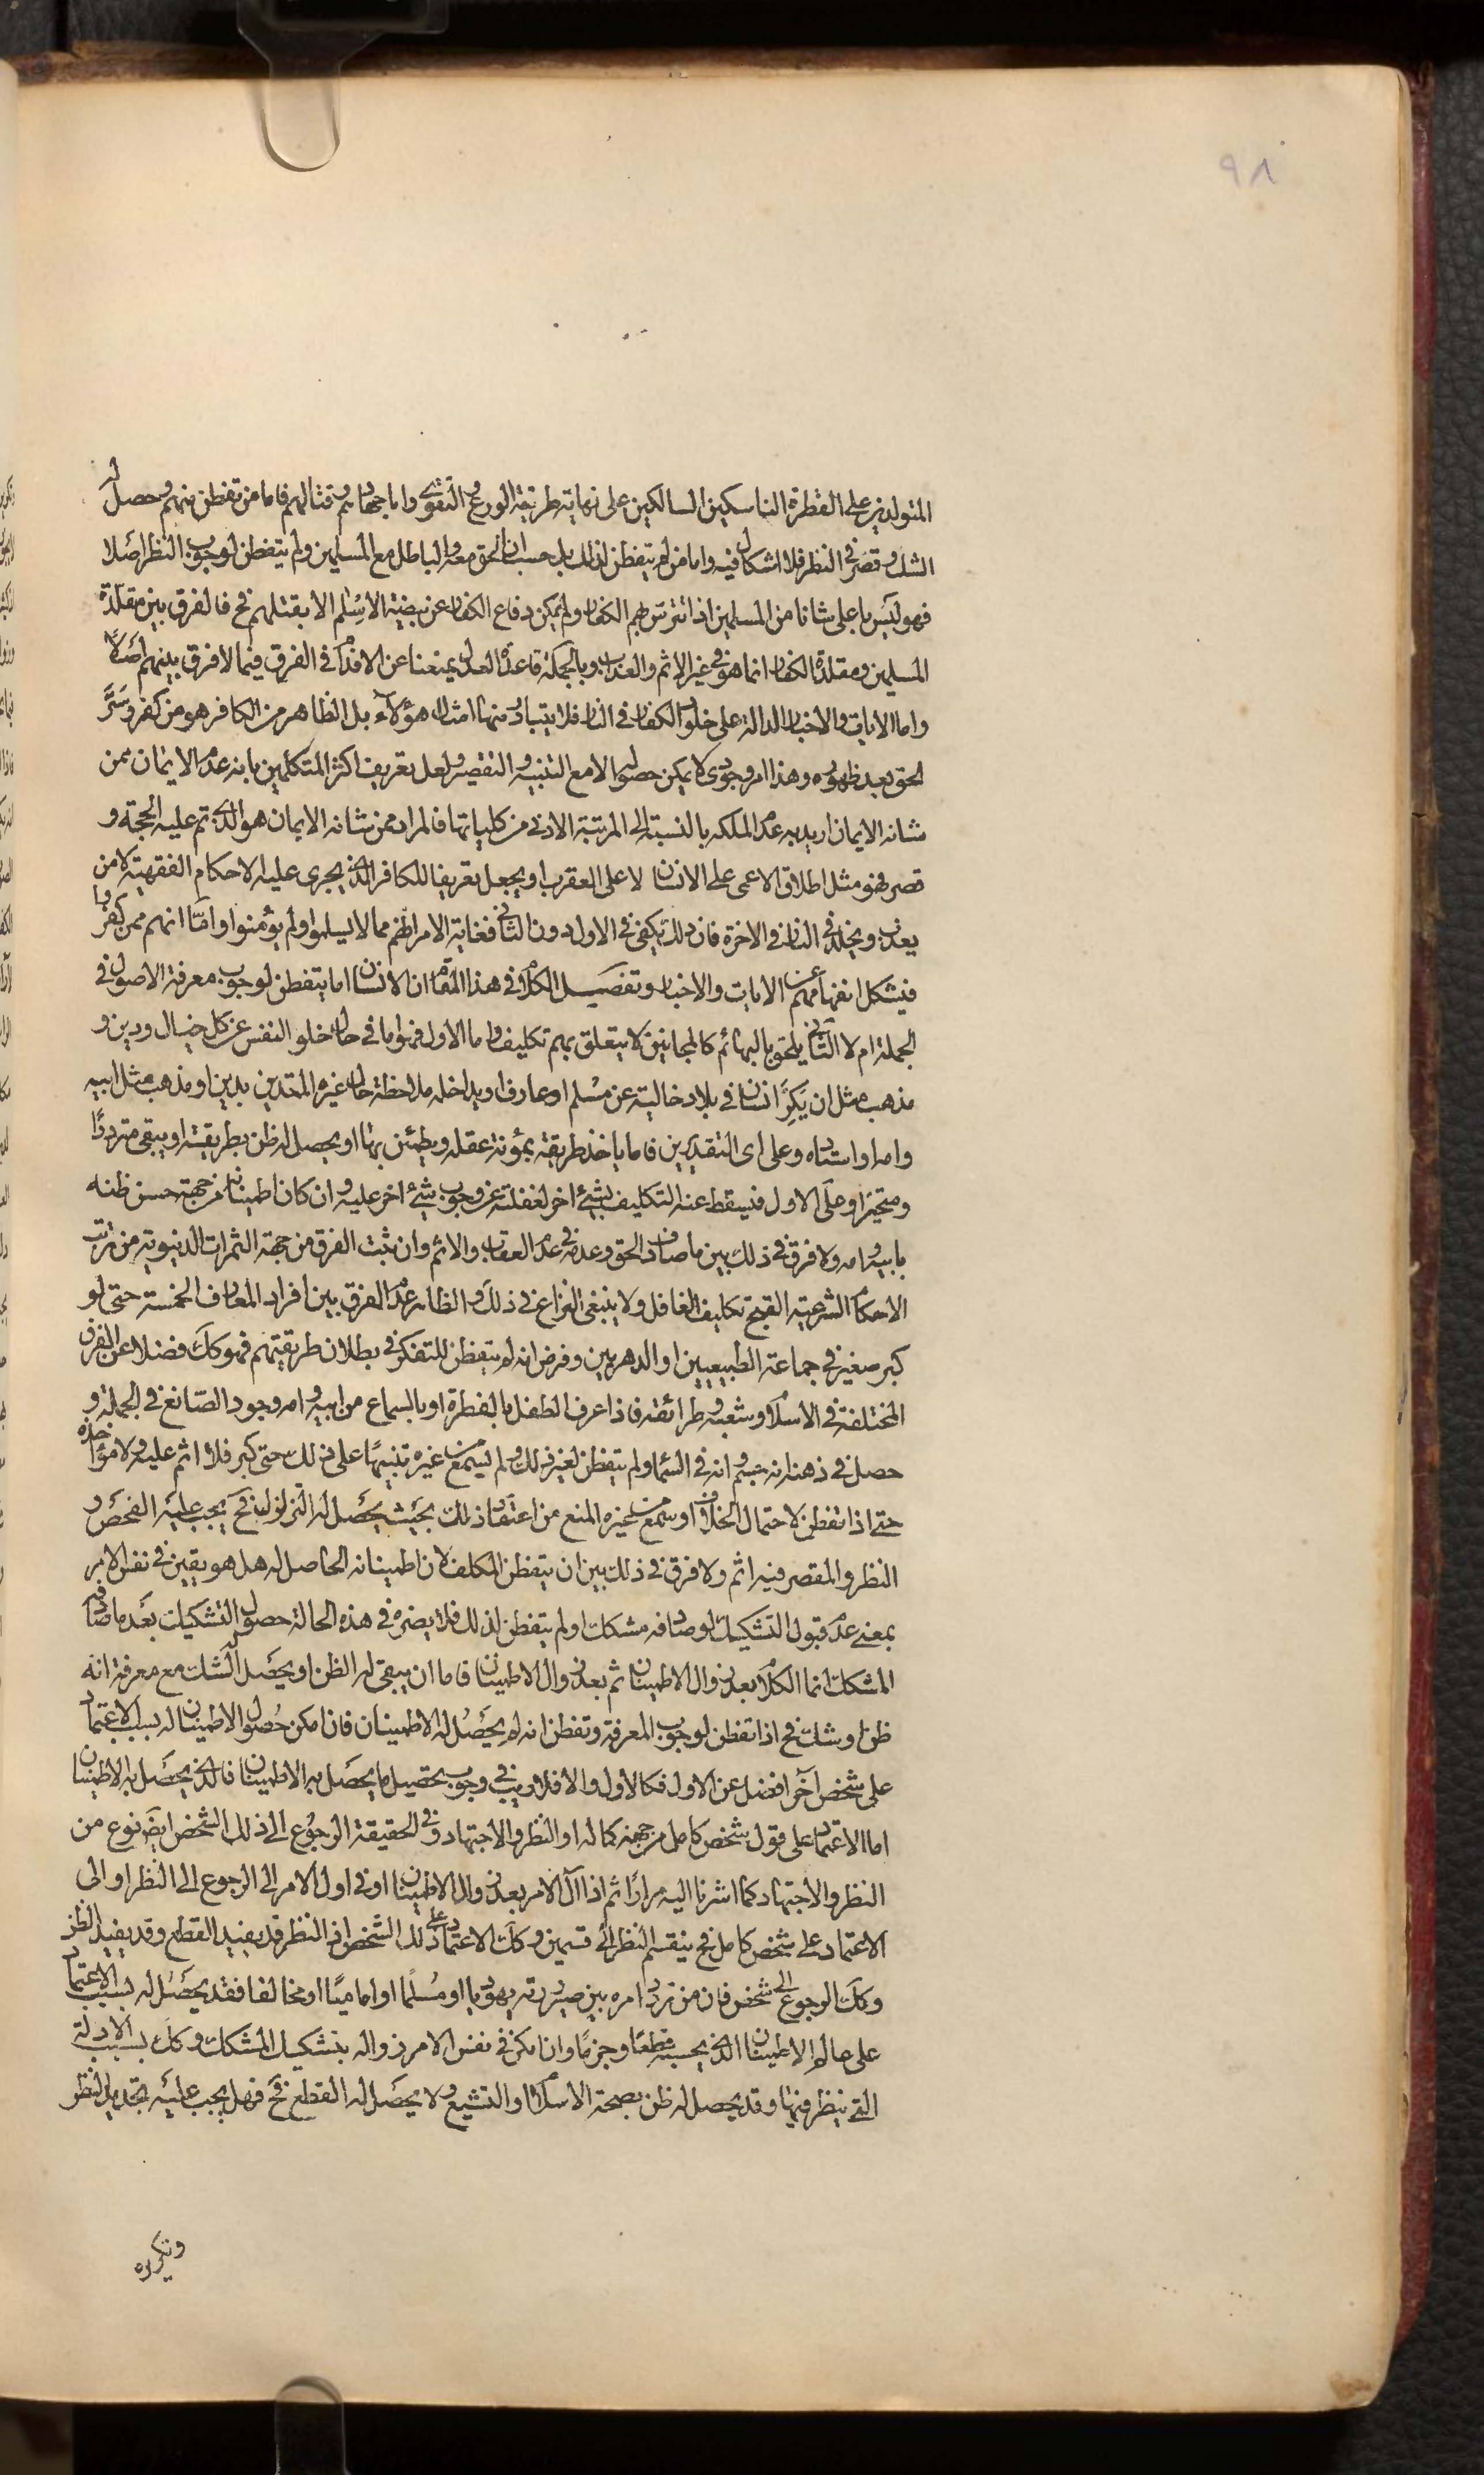 ٩٨
المتولدين على الفطرة الناسكين السالكين على نهاية طريقة الورع والتقوى واما جهادهم وقتالهم فاما من تفطن منهم وحصل له
الشك وقصر في النظر فلا اشكال فيه واما من لم يتفطن لذلك بل حسب ان الحق معه والباطل مع المسلمين ولم يتفطن لوجوب النظر اصلا
فهو ليس باعلى شانا من المسلمين اذا تترس بهم الكفار ولم يمكن دفاع الكفار عن بيضة الاسلم الا بقتلهم فح فالفرق بين مقلدة
المسلمين ومقلدة الكفار انما هو في غير الاثم والعذاب وبالجملة قاعدة العدل يمنعنا عن الاقدام في الفرق فيما لا فرق بينهم اصلا
واما الايات والاخبار الدالة على خلود الكفار في النار فلا يتبادر منها امثال هؤلاء بل الظاهر من الكافر هو من كفر وستر
الحق بعد ظهوره وهذا امر وجودي لا يمكن حصوله الا مع التنبيه والتقصير ولعل تعريف اكثر المتكلمين بانه عدم الايمان ممن
شانه الايمان اريد به عدم الملكه بالنسبة الى المرتبة الادنى من كلياتها فالمراد ممن شانه الايمان هو الذي تم عليه الحجة و
قصر فهو مثل اطلاق الاعمى على الانسان لا على العقرب او يجعل تعريفا للكافر الذي يجرى عليه الاحكام الفقهية لا من
يعذب ويخلد في النار في الاخرة فان ذلك يكفي في الاول دون الثاني فغاية الامر انهم مما لا يسلموا ولم يؤمنوا واما انهم ممن كفر بها
فيشكل انفهامهم عن الايات والاخبار وتفصيل الكلام في هذا المقام ان الانسان اما يتفطن لوجوب معرفة الاصول في
الجملة ام لا الثاني يلحق بالبهائم كالمجانين لا يتعلق بهم تكليف واما الاول فهو اما في حال خلو النفس عن كل خيال ودين و
مذهب مثل ان يكبر انسان في بلاد خالية عن مسلم او عارف او يداخله ملاحظة حال غيره المتدين بدين او مذهب مثل ابيه
وامه او استاده وعلى اى التقديرين فاما ياخذ طريقة بمؤنة عقله ويطمئن بها او يحصل له ظن بطريقة او يبقى مترددا
ومتحيرا وعلى الاول فيسقط عنه التكليف بشيء اخر لغفلته عن وجوب شيء اخر عليه وان كان اطمينانه من جهة حسن ظنه
بابيه وامه ولا فرق في ذلك بين ما صادف الحق وعدمه في عدم العقاب والاثم وان ثبت الفرق من جهة الثمرات الدنيوية من ترتب
الاحكام الشرعية لقبح تكليف الغافل ولا ينبغي النزاع في ذلك والظاهر عدم الفرق بين افراد المعارف الخمسة حتى لو
كبر صغير في جماعة الطبيعيين او الدهريين وفرض انه لم يتفطن للتفكر في بطلان طريقتهم فهو كك فضلا عن الفرق
المختلفة في الاسلام وشعبه وطرائقه فاذا عرف الطفل بالفطرة او بالسماع من ابيه وامه وجود الصانع في الجملة و
حصل في ذهنه انه جسم وانه في السماء ولم يتفطن لغير ذلك ولم يسمع من غيره تنبيها على ذلك حتى كبر فلا اثم عليه ولا مؤاخذه
حتى اذا تفطن لاحتمال الخلاف او سمع من غيره المنع من اعتقاد ذلك بحيث يحصل له التزلزل فح يجب عليه الفحص و
النظر والمقصر فيه اثم ولا فرق في ذلك بين ان يتفطن المكلف لان اطمينانه الحاصل له هل هو يقين في نفس الامر
بمعنى عدم قبول التشكيك لو صادفه مشكك او لم يتفطن لذلك فلا يضره في هذه الحالة حصول التشكيك بعد ما صادف
المشكك انما الكلام بعد زوال الاطمينان ثم بعد زوال الاطمينان فاما ان يبقى له الظن او يحصل له الشك مع معرفة انه
ظن او شك فح اذا تفطن لوجوب المعرفة وتفطن انه لم يحصل له الاطمينان فان امكن حصول الاطمينان له بسبب الاعتماد
على شخص آخر افضل عن الاول فكالاول والا فلا ريب في وجوب تحصيل ما يحصل به الاطمينان فالذي يحصل به الاطمينان
اما الاعتماد على قول شخص كامل من جهة كماله او النظر والاجتهاد وفي الحقيقة الرجوع الى ذلك الشخص ايض نوع من
النظر والاجتهاد كما اشرنا اليه مرارا ثم اذا آل الامر بعد زوال الاطمينان او في اول الامر الى الرجوع الى النظر او الى
الاعتماد على شخص كامل فح ينقسم النظر الى قسمين وكك الاعتماد على ذلك الشخص اذ النظر قد يفيد القطع وقد يفيد الظن
وكك الرجوع الى شخص فان من تردد امره بين صيرورته يهوديا او مسلما او اماميا او مخالفا فقد يحصل له بسبب الاعتماد
على عالم الاطمينان الذي يحسبه قطعا وجزما وان امكن في نفس الامر زواله بتشكيك المشكك وكك بسبب الادلة
التي ينظر فيها وقد يحصل له ظن بصحة الاسلام والتشيع ولا يحصل له القطع فح فهل يجب عليه تجديد النظر
وتكريره